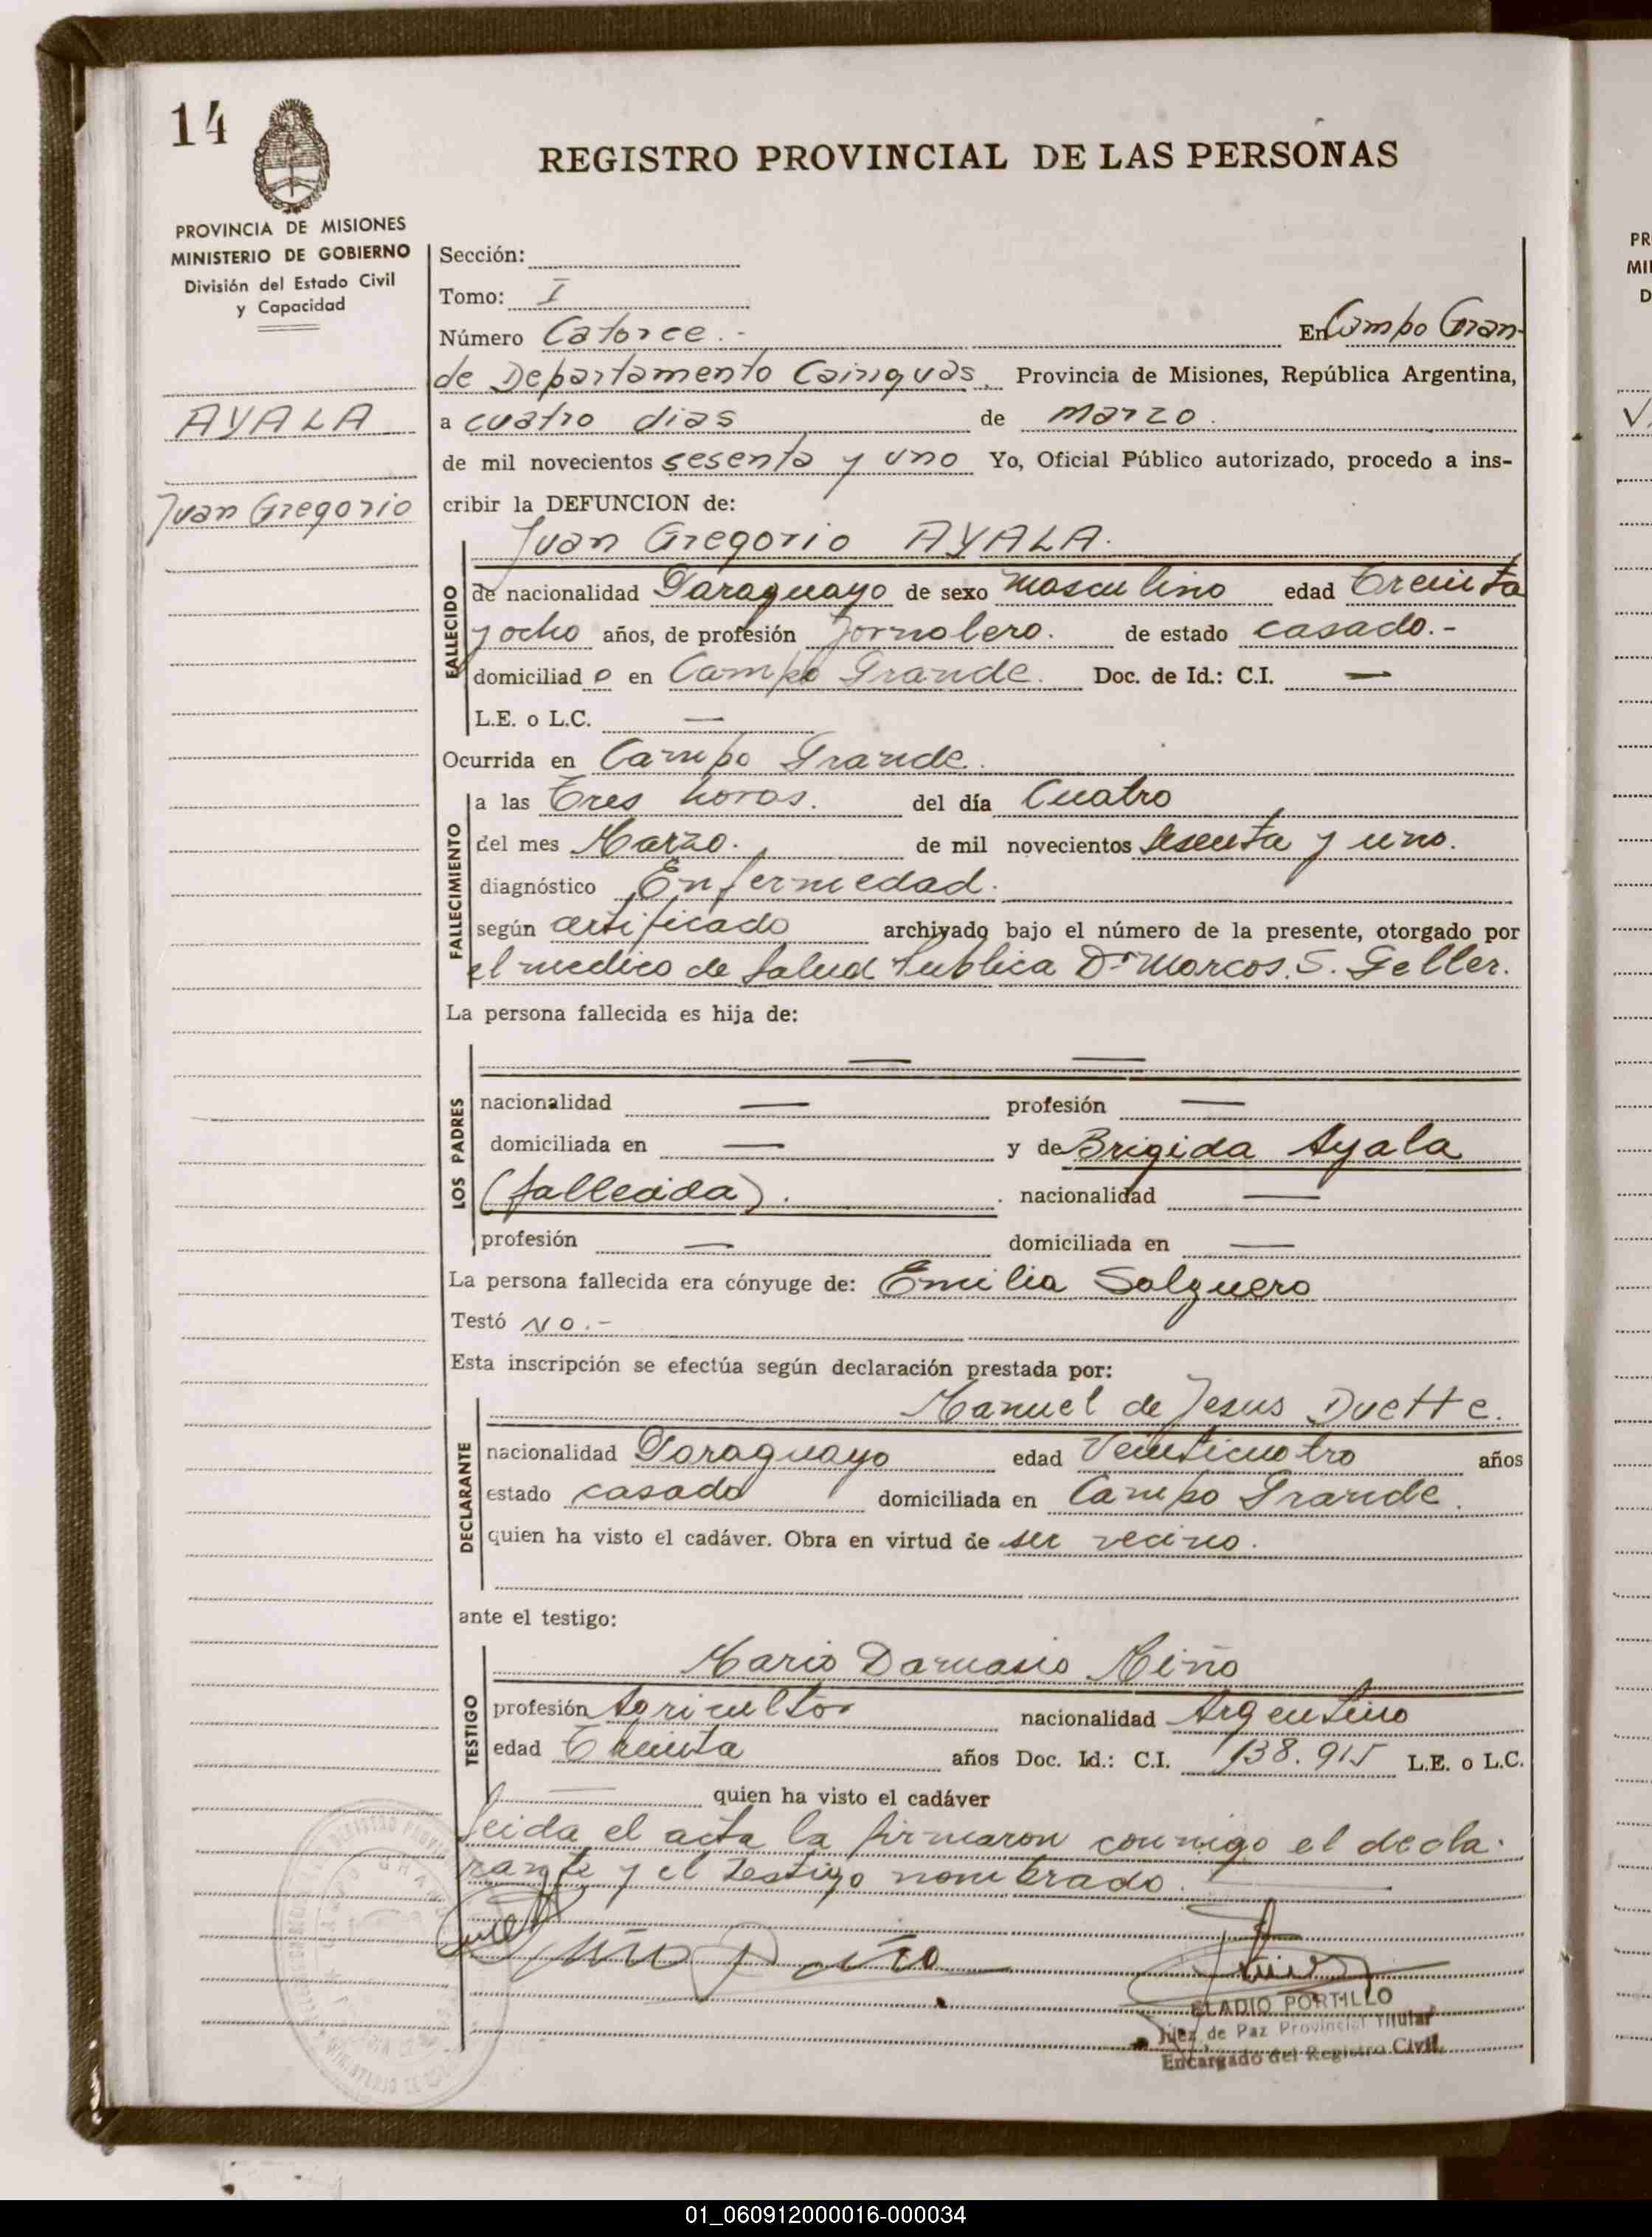 14
REGISTRO PROVINCIAL DE LAS PERSONAS
PROVINCIA DE MISIONES
MINISTERIO DE GOBIERNO
División del Estado Civil
y Capacidad
AYALA
Juan Gregorio
Sección:
Tomo: I
Número Catorce.- En Campo Gran-
de Departamento Cainguas, Provincia de Misiones, República Argentina,
a cuatro dias de marzo.
de mil novecientos sesenta y uno Yo, Oficial Público autorizado, procedo a ins-
cribir la DEFUNCION de:
Juan Gregorio AYALA.
FALLECIDO
de nacionalidad Paraguayo de sexo masculino edad Treinta
y ocho años, de profesión Jornalero. de estado casado.-
domiciliad o en Campo Grande. Doc. de Id.: C.I. —
L.E. o L.C. —
Ocurrida en Campo Grande.
FALLECIMIENTO
a las Tres horas. del día Cuatro
del mes Marzo. de mil novecientos sesenta y uno.
diagnóstico Enfermedad.
según certificado archivado bajo el número de la presente, otorgado por
el medico de Salud Publica Dr Marcos. S. Geller.
La persona fallecida es hija de:
LOS PADRES
— —
nacionalidad — profesión —
domiciliada en — y de Brigida Ayala
(fallecida). nacionalidad —
profesión — domiciliada en —
La persona fallecida era cónyuge de: Emilia Salguero
Testó NO.-
Esta inscripción se efectúa según declaración prestada por:
Manuel de Jesus Duette.
DECLARANTE
nacionalidad Paraguayo edad Veinticuatro años
estado casado domiciliada en Campo Grande.
quien ha visto el cadáver. Obra en virtud de ser vecino.
ante el testigo:
Mario Damasio Miño
TESTIGO
profesión Agricultor nacionalidad Argentino
edad Treinta años Doc. Id.: C.I. 138.915 L.E. o L.C.
— quien ha visto el cadáver
Leida el acta la firmaron conmigo el decla-
rante y el testigo nombrado.
ELADIO PORTILLO
Juez de Paz Provincial Titular
Encargado del Registro Civil
PR
MI
D
V
01_060912000016-000034